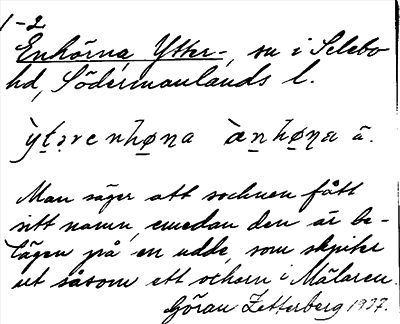 1-2
Enhörna, Ytter-, sn i Selebo
hd, Södermanlands l.
Man säger att socknen fått
sitt namn, emedan den är be-
lägen på en udde, som skjuter
ut såsom ett ochorn i Mälaren.
Göran Zetterberg 1927.